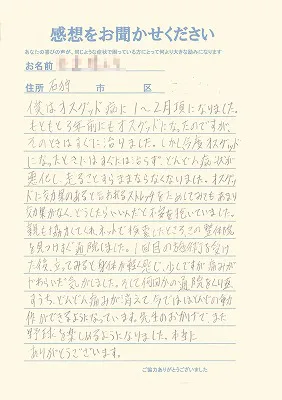 感想をお聞かせください
あなたの喜びの声が、同じような症状で困っている方にとって何より大きな励みになります
お名前
住所 石狩 市 区
僕はオスグッド病に1~2月頃になりました。
もともと3年前にもオスグッドになったのですが、
そのときはすぐに治りました。しかし今度オスグッド
になったときにはすぐには治らず、どんどん症状が
悪化し、走ることすらままならなくなりました。オスグッド
に効果のあると言われるストレッチをためしてみてもあまり
効果がなく、どうしたらいいんだと不安を抱いていました。
親も協力してくれ、ネットで検索したところ、この整体院
を見つけ、通院しました。1回目の施術を受け
た後、立ってみると身体が軽く感じ、少しですが痛みが
やわらいだ気がしました。そして何回か通院をくり返
すうち、どんどん痛みが消えて、今ではほとんどの動
作ができるようになっています。先生のおかげで、また
野球を楽しめるようになりました。本当に
ありがとうございます。
ご協力ありがとうございました